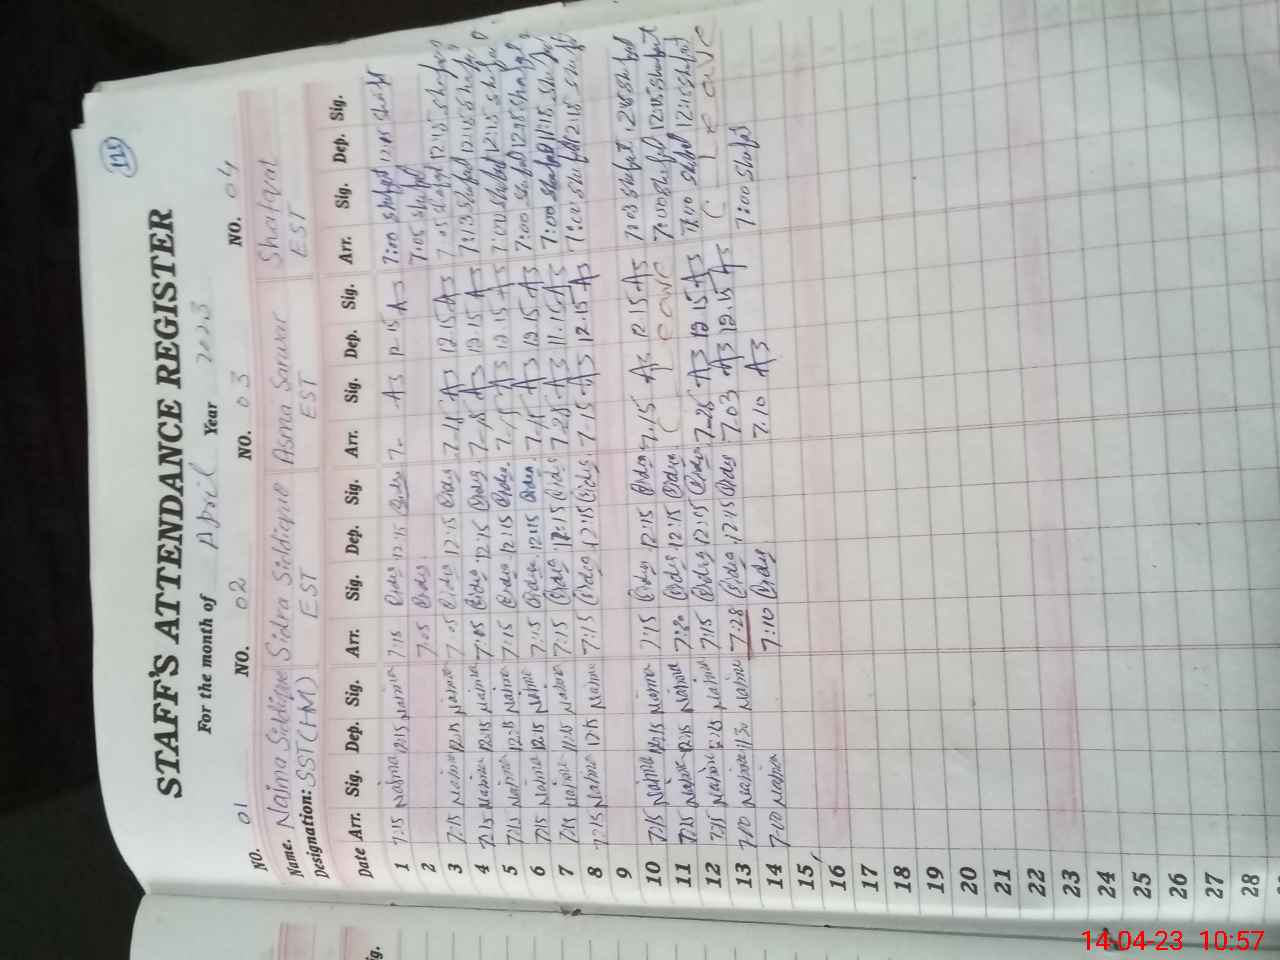 125
STAFF'S ATTENDANCE REGISTER
For the month of April Year 2023
NO. 01 NO. 02 NO. 03 NO. 04
Name. Naima Siddique Sidra Siddique Asma Sarwar Shafqat
Designation: SST (HM) EST EST EST
Date Arr. Sig. Dep. Sig. Arr. Sig. Dep. Sig. Arr. Sig. Dep. Sig. Arr. Sig. Dep. Sig.
1 7:15 Naima 12:15 Naima 7:15 12:15 7- 12:15 7:00 Shafqat 12:15 Shafqat
2 7:05 7:05 Shafqat
3 7:15 Naima 12:15 Naima 7:05 12:15 7-15 12.15 7:05 Shafqat 12:15 Shafqat
4 7:15 Naima 12:15 Naima 7:05 12:15 7-15 12.15 7:13 Shafqat 12:15 Shafqat
5 7:15 Naima 12:15 Naima 7:15 12:15 7-15 12.15 7:00 Shafqat 12:15 Shafqat
6 7:15 Naima 12:15 Naima 7:15 12:15 7-15 12.15 7:00 Shafqat 12:15 Shafqat
7 7:15 Naima 11:15 Naima 7:15 12:15 7.25 11.15 7:00 Shafqat 11:15 Shafqat
8 7:15 Naima 12:15 Naima 7:15 12:15 7-15 12.15 7:00 Shafqat 12:15 Shafqat
9
10 7:15 Naima 12:15 Naima 7:15 12:15 7.15 12.15 7:03 Shafqat 12:15 Shafqat
11 7:15 Naima 12:15 Naima 7:20 12:15 C Leave 7:00 Shafqat 12:15 Shafqat
12 7:15 Naima 12:15 Naima 7:15 12:15 7-25 12.15 7:00 Shafqat 12:15 Shafqat
13 7:10 Naima 11:30 Naima 7:28 12:15 7.03 12.15 C Leave
14 7:10 Naima 7:10 7.10 7:00 Shafqat
15
16
17
18
19
20
21
22
23
24
25
26
27
28
Sig.
14-04-23 10:57